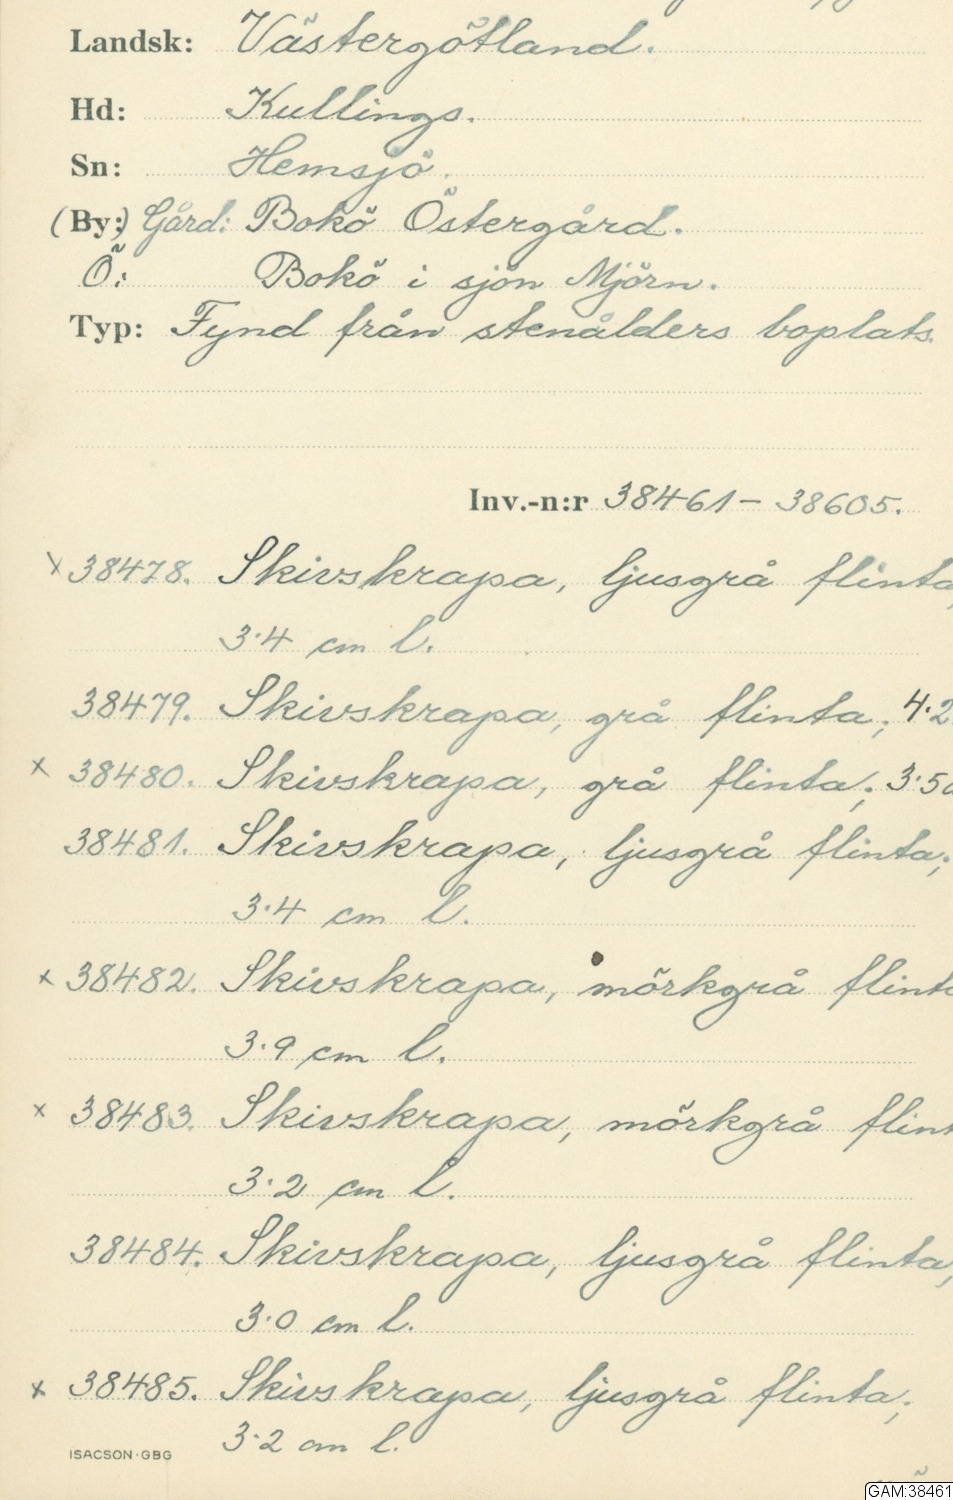 Landsk: Västergötland.
Hd: Kullings.
Sn: Hemsjö.
(By:) Gård: Bokö Östergård.
Ö: Bokö i sjön Mjörn.
Typ: Fynd från stenålders boplats.
Inv.-n:r 38461 – 38605.
x 38478. Skivskrapa, ljusgrå flinta,
3.4 cm l.
38479. Skivskrapa, grå flinta; 4.2
x 38480. Skivskrapa, grå flinta; 3.5
38481. Skivskrapa, ljusgrå flinta;
3.4 cm l.
x 38482. Skivskrapa, mörkgrå flinta
3.9 cm l.
x 38483. Skivskrapa, mörkgrå flint
3.2 cm l.
38484. Skivskrapa, ljusgrå flinta,
3.0 cm l.
x 38485. Skivskrapa, ljusgrå flinta;
3.2 cm l.
ISACSON·GBG
GAM:38461